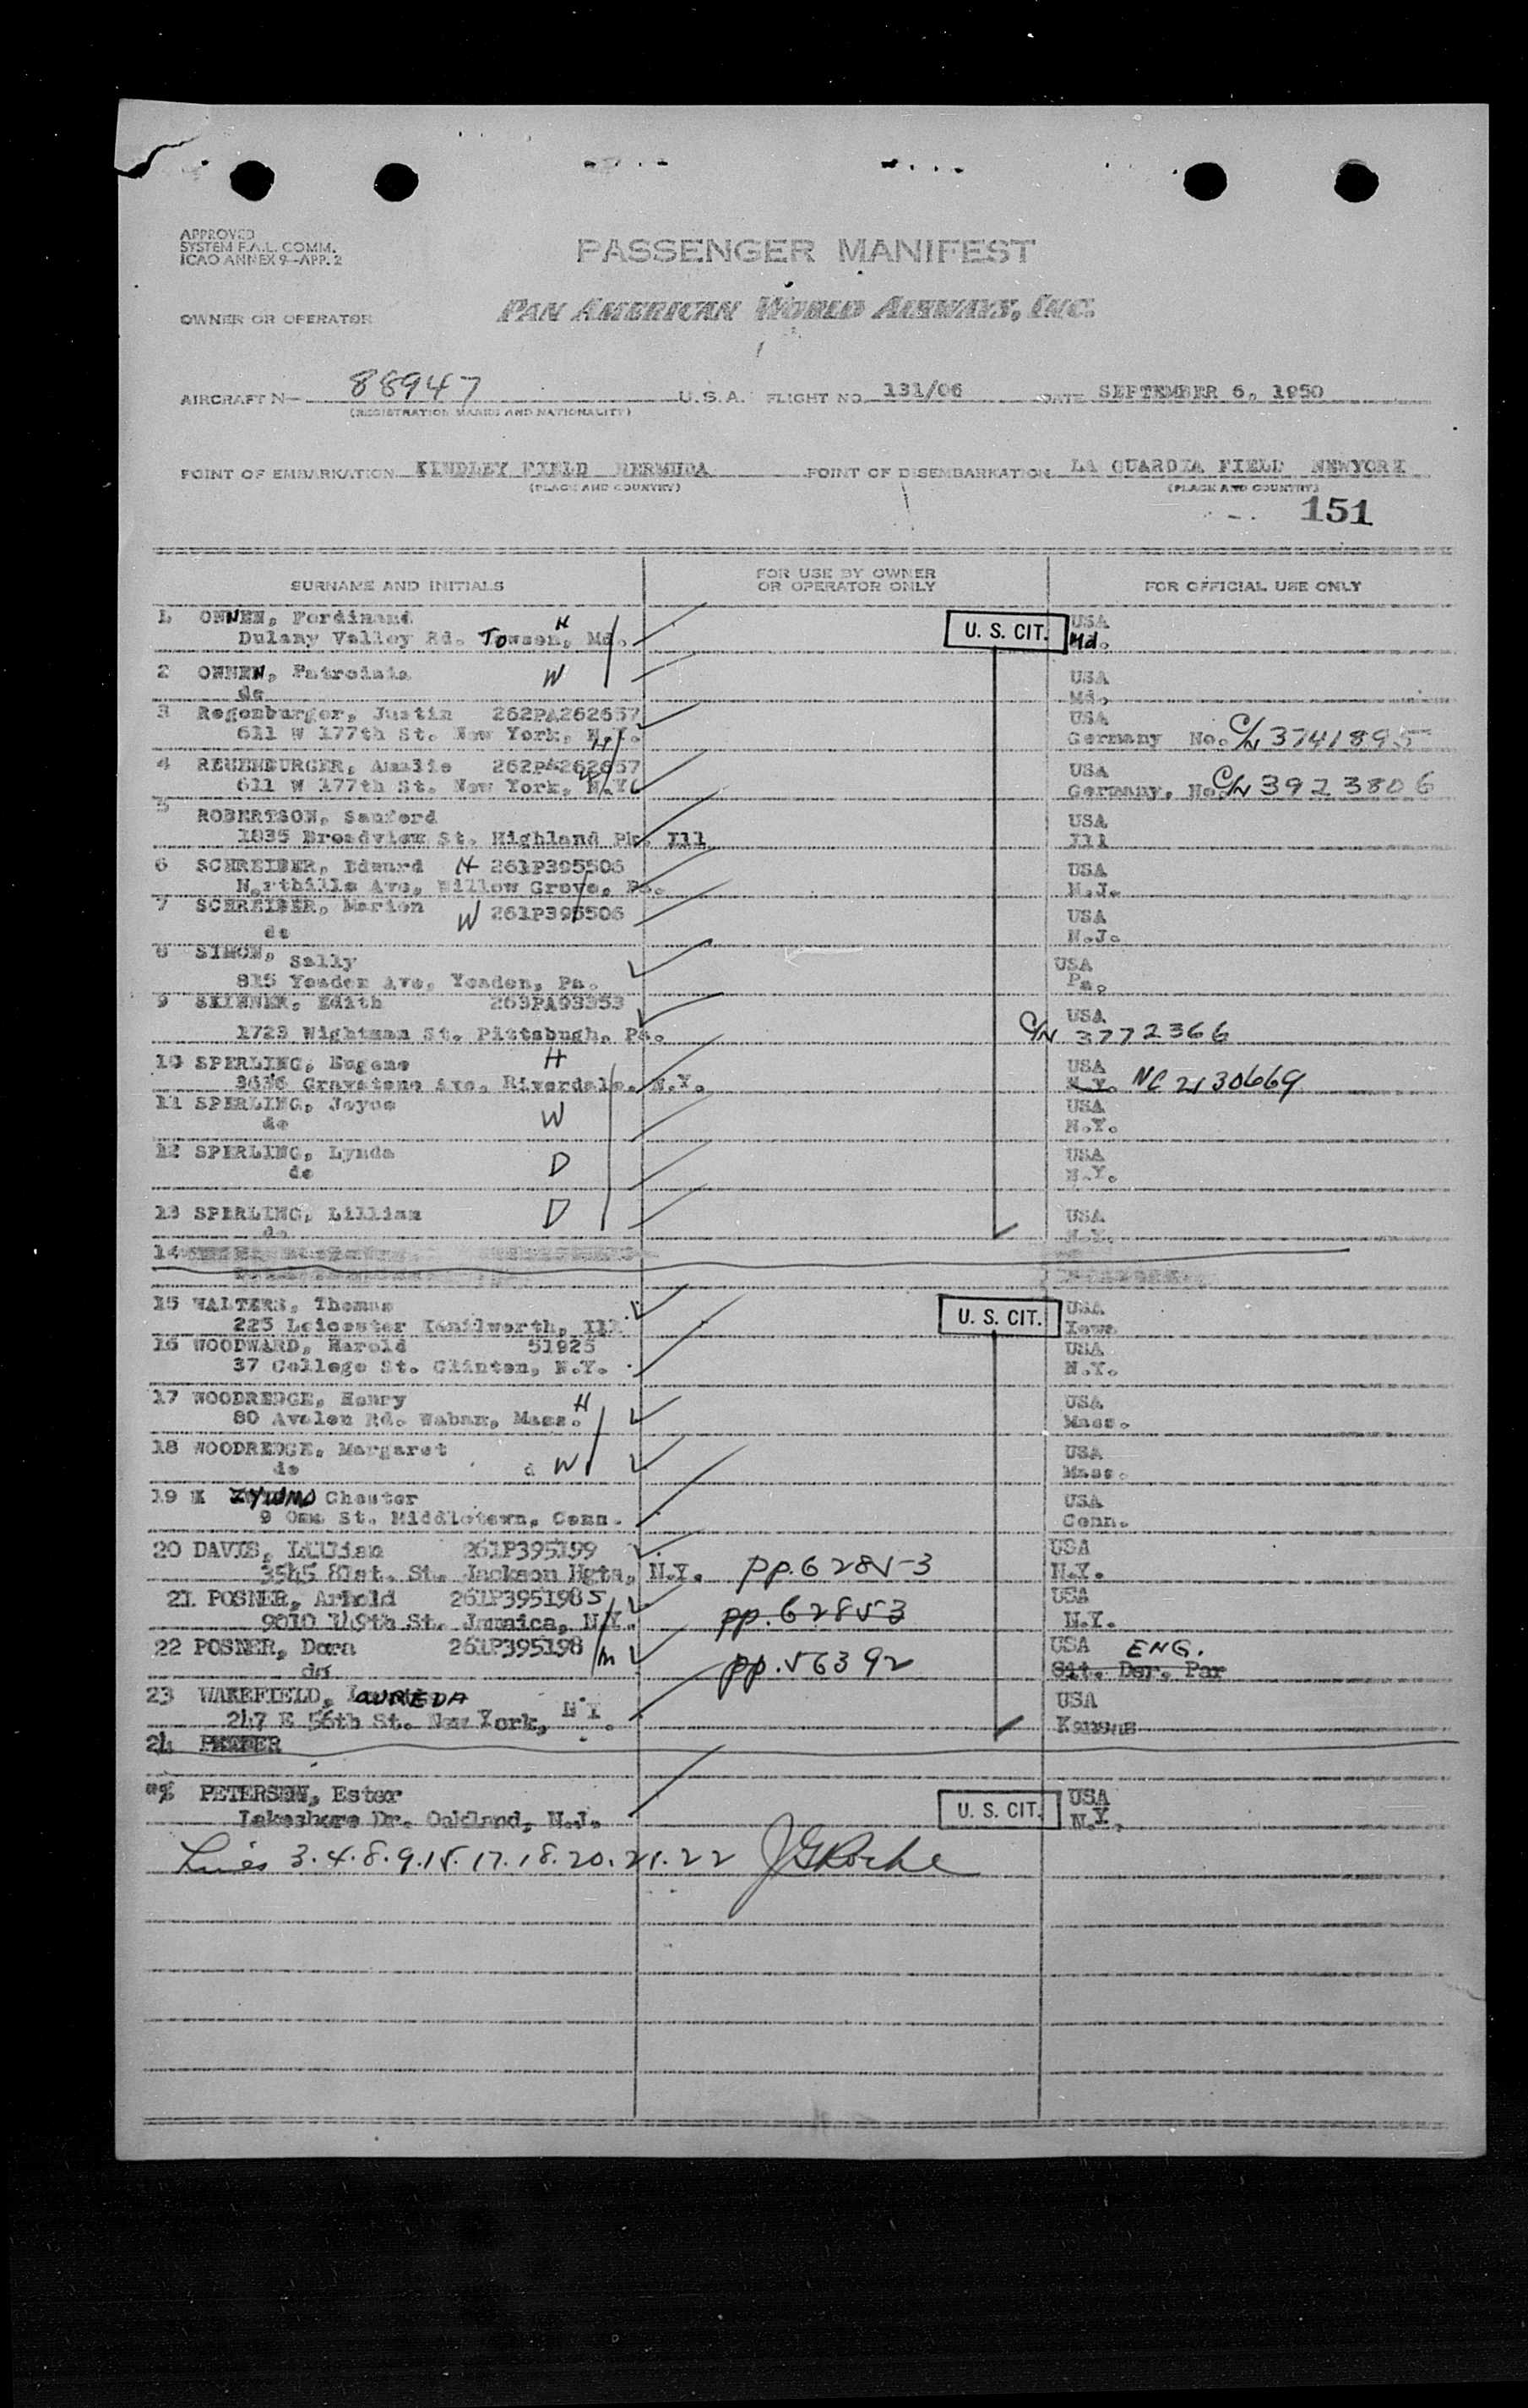 APPROVED
SYSTEM F.A.L. COMM.
ICAO ANNEX 9-APP. 2
PASSENGER MANIFEST
OWNER OR OPERATOR PAN AMERICAN WORLD AIRWAYS, INC.
AIRCRAFT N- 88947 U.S.A. FLIGHT NO. 131/06 DATE SEPTEMBER 6, 1950
(REGISTRATION MARKS AND NATIONALITY)
POINT OF EMBARKATION KINDLEY FIELD BERMUDA POINT OF DISEMBARKATION LA GUARDIA FIELD NEWYORK
(PLACE AND COUNTRY) (PLACE AND COUNTRY)
151
SURNAME AND INITIALS FOR USE BY OWNER OR OPERATOR ONLY FOR OFFICIAL USE ONLY
1 ONNEN, Ferdinand H USA
Dulany Valley Rd. Towson, Md. U. S. CIT. Md.
2 ONNEN, Patroinia W USA
do Md.
3 Regenburger, Justin 262PA262657 USA
611 W 177th St. New York, N.Y. H Germany No. C/N 3741895
4 REGENBURGER, Amalie 262PA262657 USA
611 W 177th St. New York, N.Y. W Germany, No. C/N 3923806
5 ROBERTSON, Sanford USA
1835 Broadview St. Highland Pk. Ill Ill
6 SCHREIBER, Edward H 261P395506 USA
Northills Ave, Willow Grove, Pa. N.J.
7 SCHREIBER, Marion W 261P395506 USA
do N.J.
8 SIMON, Sally USA
815 Yeadon Ave, Yeadon, Pa. Pa.
9 SKINNER, Edith 263PA93353 USA
1723 Wightman St. Pittsbugh, Pa. C/N 3772366
10 SPERLING, Eugene H USA
3636 Graystone Ave. Riverdale, N.Y. N.Y. NC 2130669
11 SPERLING, Joyce W USA
do N.Y.
12 SPERLING, Lynda D USA
do N.Y.
13 SPERLING, Lillian D USA
do N.Y.
14
15 WALTERS, Thomas U. S. CIT. USA
225 Leicester Kenilworth, Ill Iowa
16 WOODWARD, Harold 51925 USA
37 College St. Clinton, N.Y. N.Y.
17 WOODREDGE, Henry H USA
80 Avalon Rd. Waban, Mass. Mass.
18 WOODREDGE, Margaret USA
do d W Mass.
19 Chester USA
9 St. Middletown, Conn. Conn.
20 DAVIS, Lillian 261P395199 USA
3545 81st. St. Jackson Hgts, N.Y. pp. 62853 N.Y.
21 POSNER, Arnold 261P395198 S USA
9010 149th St. Jamaica, N.Y. pp. 62853 N.Y.
22 POSNER, Dora 261P395198 m USA ENG.
do pp. 56392 Cit. Der. Par
23 WAKEFIELD, LAUREDA USA
247 E 56th St. New York, N Y. Kansas
24
PETERSEN, Ester U. S. CIT. USA
Lakeshore Dr. Oakland, N.J. N.Y.
Lines 3.4.8.9.15.17.18.20.21.22 JGRoche